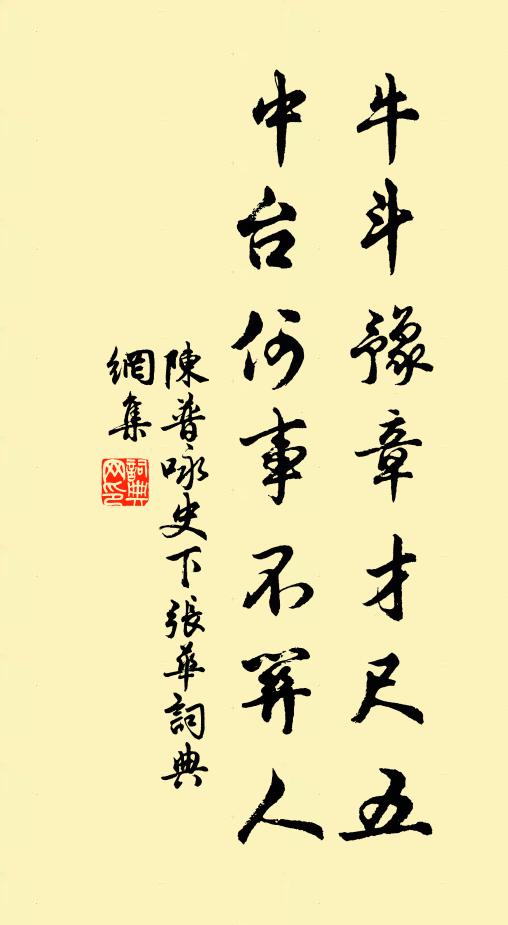 牛斗豫章才尺五
中台何事不關人
陳普咏史下張華詞典
網集
詞典
网印